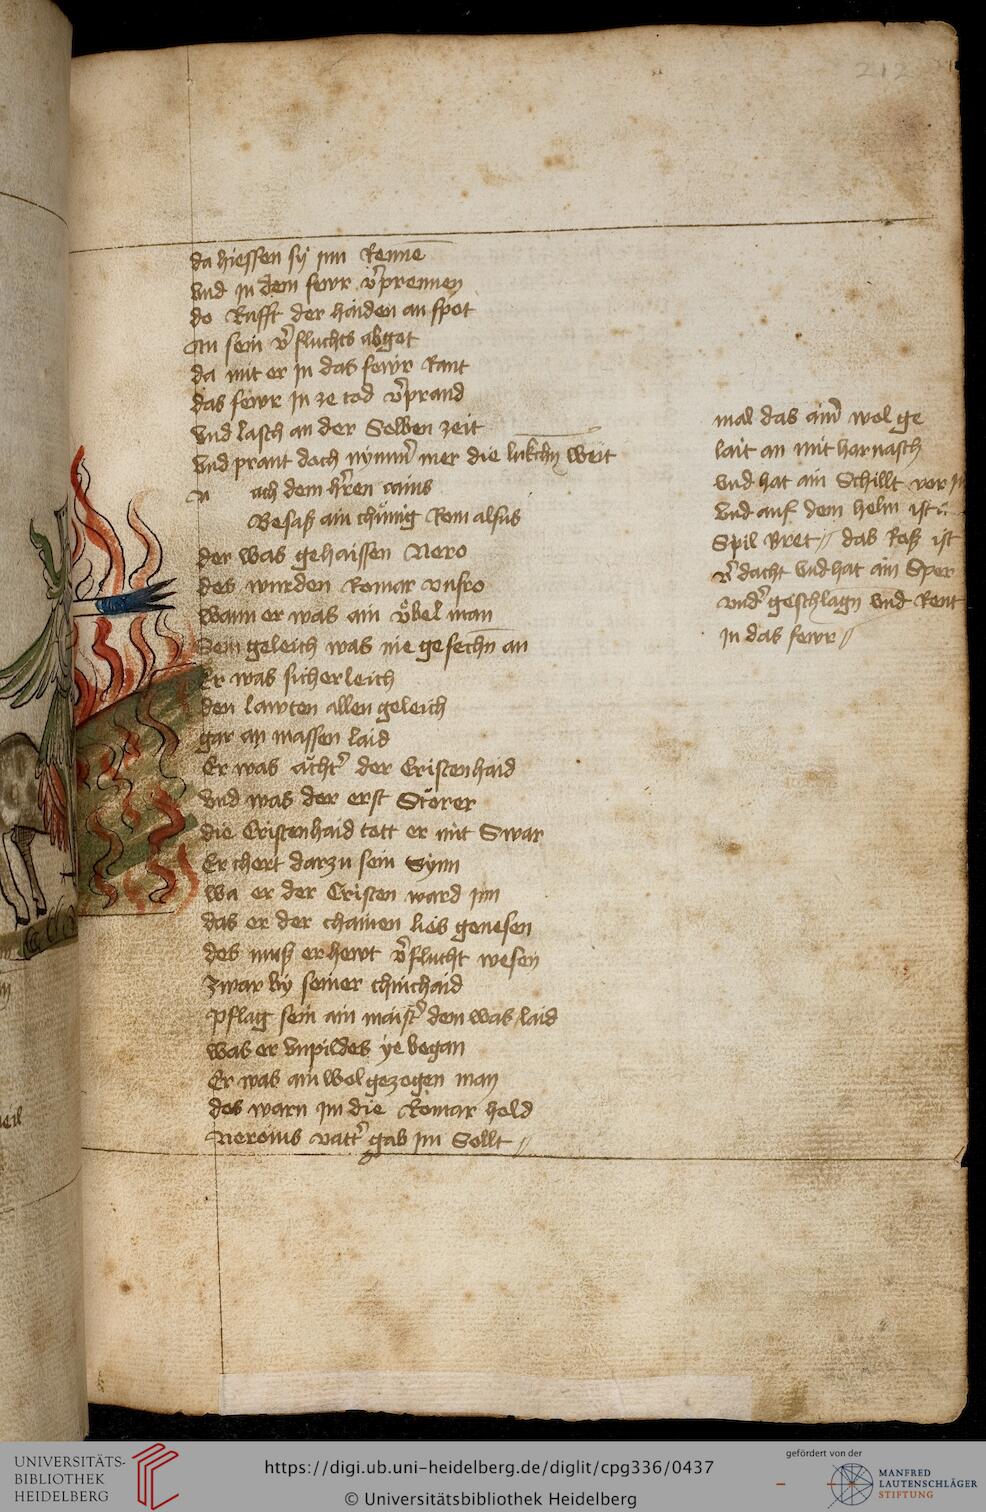 212
da hiessen sÿ inn Renne
vnd in dem fewr v̾prennen
do Rufft der haiden an spot
an sein v̾fluchts abgot
da mit er in das fewr Rant
das fewr in ze tod v̾prand
vnd lasch an der Selben zeit
vnd prant doch nÿmm̾ mer die weit
n ach dem h̾ren
Besasz ain chünig Rom alsus
der was gehaissen Nero
des wurden Romar vnfro
wann er was ain vͦbel man
Sein geleich was nie gesechn̄ an
Er was sicherleich
den lawten allen geleich
gar an massen laid
Er was ächt̾ der Cristenhaid
vnd was der erst Störer
die Cristenhaid tett er mit Swar
Er chert darzu sein Synn
wa er der Cristen ward inn
das er der chainen lies genesen
des musz er hewt v̾flucht wesen
zwar bÿ seiner chinthaid
pflag sein ain maist̾ dem was laid
was er vnpildes ÿe began
Er was ain wolgezogen man
des warn im die Römar hold
Neronis vatt̾ gab im Sollt //
mal das ain̾ wol ge
lait an mit harnasch
vnd hat ain Schillt vor
vnd auf dem helm ist
Spil Bret // das Rosz ist
v̾dacht vnd hat ain Sper
vnd̾geschlagn vnd Rent
in das fewr //
UNIVERSITÄTS-
BIBLIOTHEK
HEIDELBERG
https://digi.ub.uni-heidelberg.de/diglit/cpg336/0437
© Universitätsbibliothek Heidelberg
gefördert von der
MANFRED
LAUTENSCHLÄGER
STIFTUNG